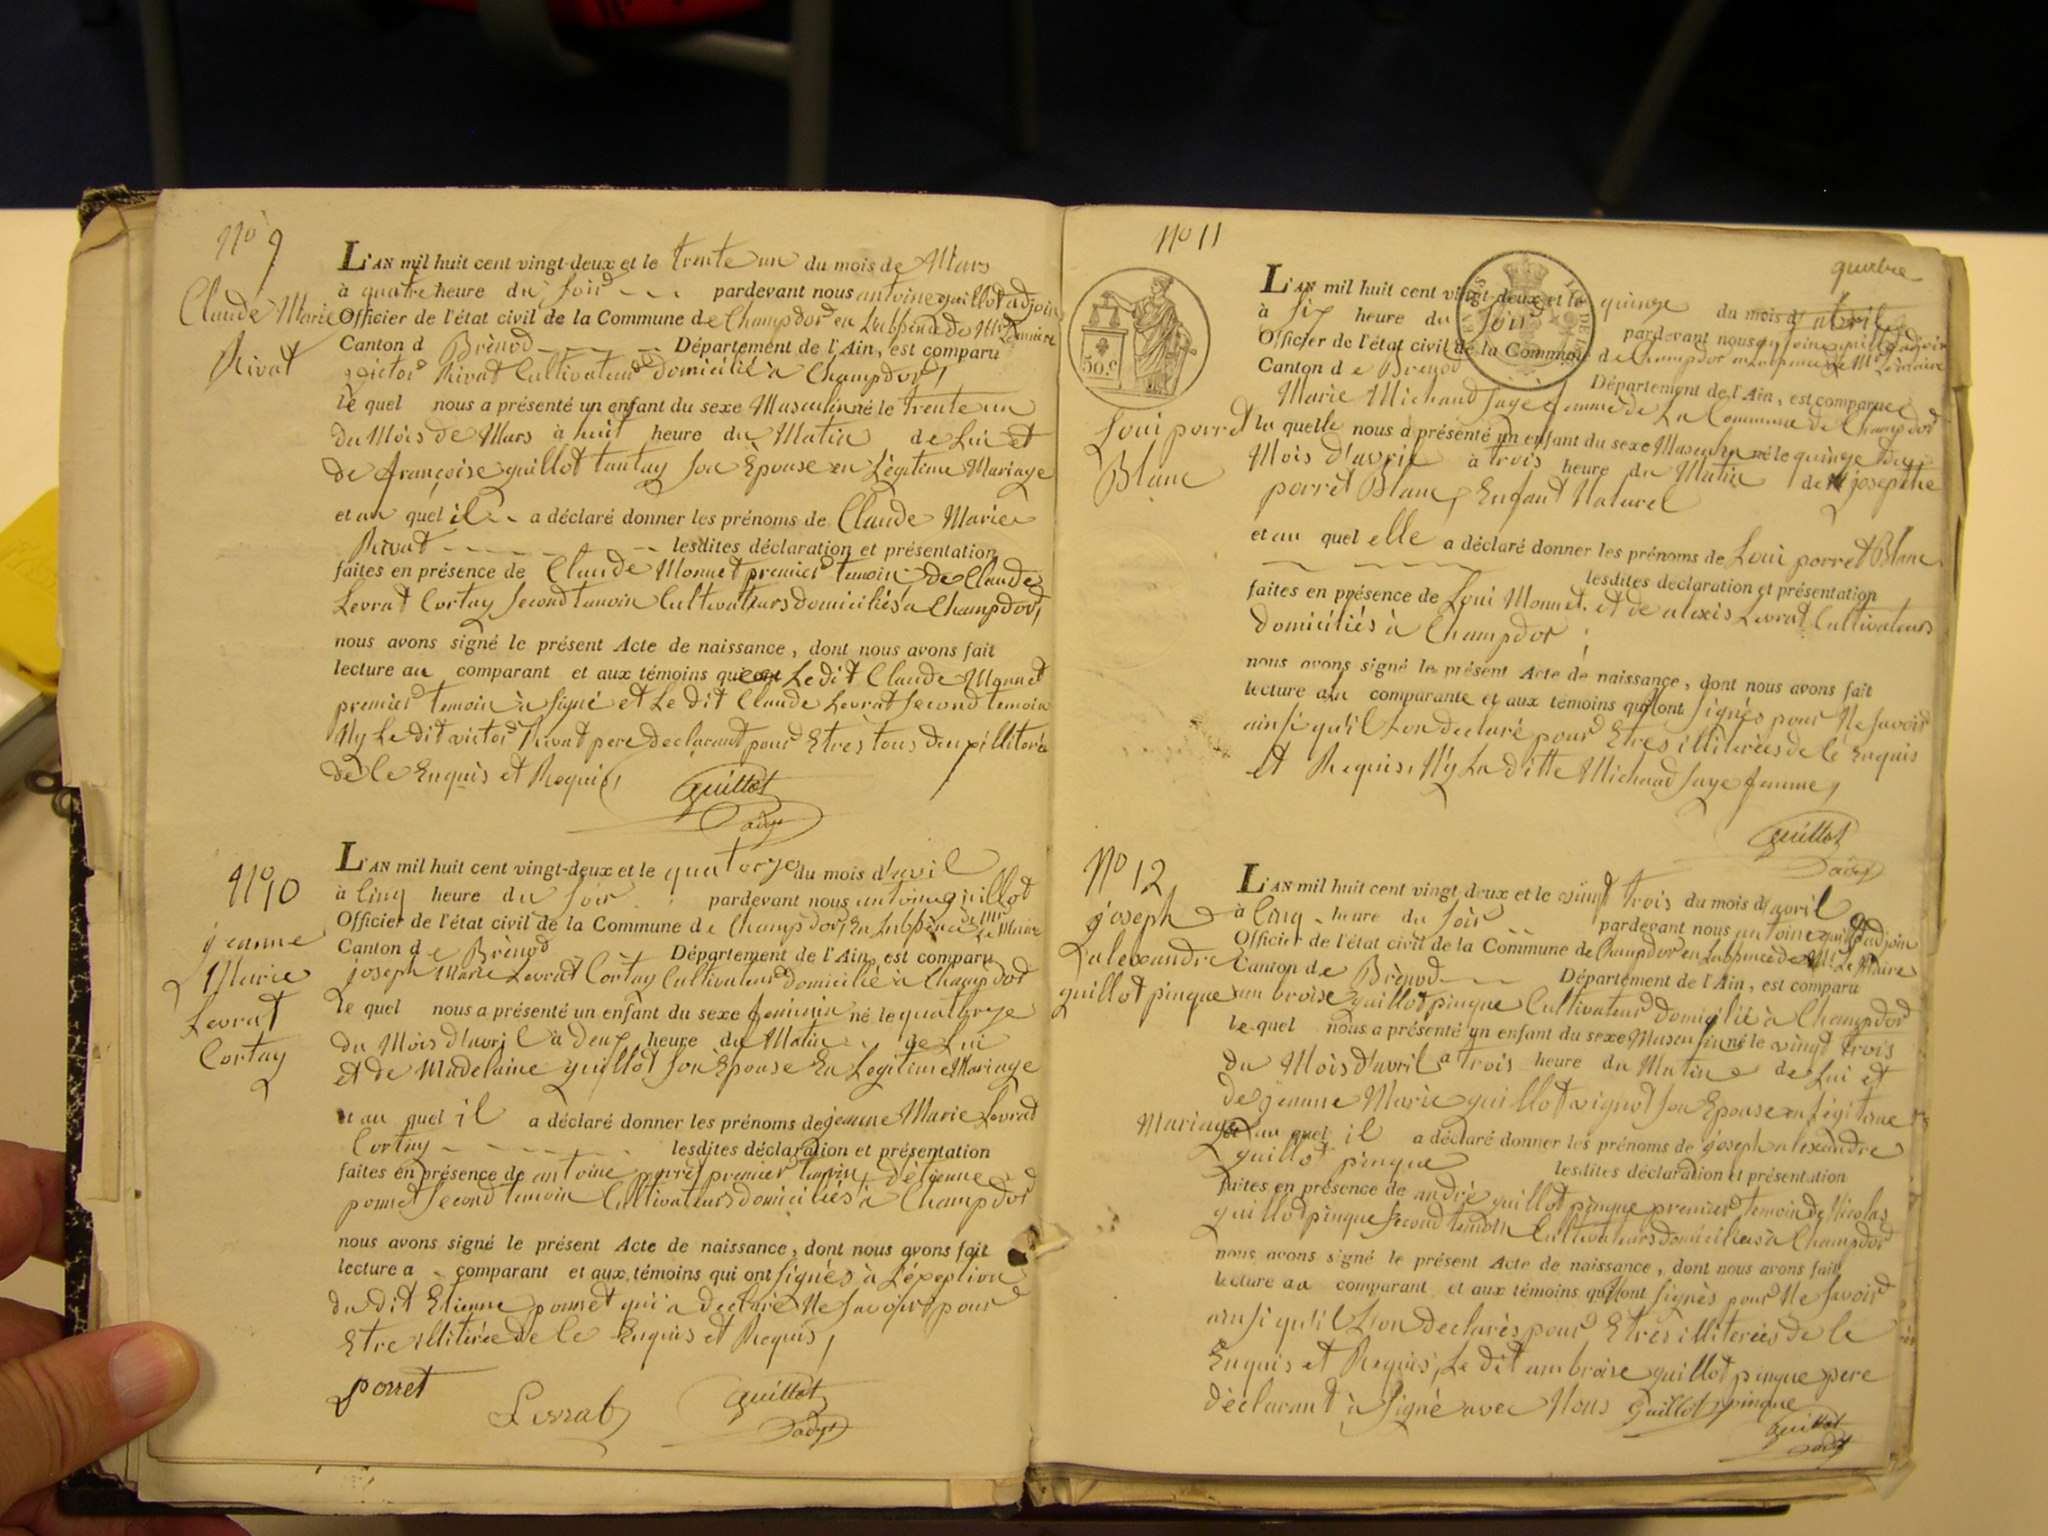 N° 9
Claude Marie
Rivat
L'AN mil huit cent vingt-deux et le trente un du mois de Mars
à quatre heure du Soir pardevant nous antoine guillot adjoin
Officier de l'état civil de la Commune de Champdor en Labsence de Mr Lemaire
Canton d Brènod Département de l'Ain, est comparu
victor Rivat Cultivateur domicilié à Champdor,
le quel nous a présenté un enfant du sexe Masculin né le trente un
du Mois de Mars à huit heure du Matin de Lui et
de françoise guillot tantay Son Epouse en Légitime Mariage
et au quel il a déclaré donner les prénoms de Claude Marie
Rivat lesdites déclaration et présentation
faites en présence de Claude Monnet premier temoin de Claude
Levrat Cortay Second temoin Cultivateurs domiciliés à Champdor,
nous avons signé le présent Acte de naissance, dont nous avons fait
lecture au comparant et aux témoins qui Le dit Claude Monnet
premier temoin à signé et Le dit Claude Levrat Second temoin
Ny Le dit victor Rivat pere declarant pour Etres tous deux illiterés
de le Enquis et Requis,
Guillot
adjt
N° 10
jeanne
Marie
Levrat
Cortay
L'AN mil huit cent vingt-deux et le quatorze du mois d'avril
à Cinq heure du Soir pardevant nous antoine guillot
Officier de l'état civil de la Commune de Champdor, En Labsence de Mr Le Maire
Canton de Brènod Département de l'Ain, est comparu
joseph Marie Levrat Cortay Cultivateur domicilié à Champdor
Le quel nous a présenté un enfant du sexe feminin né le quatorze
du Mois d'avril à deux heure du Matin de Lui
et de Madelaine guillot Son Epouse En Legitime Mariage
et au quel il a déclaré donner les prénoms de jeanne Marie Levrat
Cortay lesdites déclaration et présentation
faites en présence de antoine porret premier temoin, d'Etienne
ponnet Second temoin Cultivateurs domiciliés à Champdor
nous avons signé le présent Acte de naissance, dont nous avons fait
lecture a comparant et aux témoins qui ont signés à L'éxeption
du dit Etienne ponnet qui a declaré Ne Savoir pour
Etre illiterée de le Enquis et Requis,
porret
Levrat
Guillot
adjt
N° 11
50.c
Loui porret
Blanc
L'AN mil huit cent vingt-deux et le quinze du mois d'avril
à Six heure du Soir pardevant nous antoine guillot adjoin
Officier de l'état civil de la Commune de Champdor en Labsence de Mr Le maire
Canton de Brènod Département de l'Ain, est comparue
Marie Michaud Sage femme de La Commune de Champdor
la quelle nous a présenté un enfant du sexe Masculin né le quinze du
Mois d'avril à trois heure du Matin de josepthe
porret Blanc, Enfant Naturel
et au quel elle a déclaré donner les prénoms de Loui porret Blanc
lesdites déclaration et présentation
faites en présence de Loui Monnet et de alexis Levrat Cultivateurs
domiciliés à Champdor
nous avons signé le présent Acte de naissance, dont nous avons fait
lecture a la comparante et aux témoins qui Nont Signés pour Ne Savoir
ainsi qu'il Lon declaré pour Etres illiterées de le Enquis
et Requis, Ny La ditte Michaud Sage femme,
Guillot
adjt
N° 12
joseph
alexandre
guillot pinque
L'AN mil huit cent vingt-deux et le vingt trois du mois d'avril
à Cinq heure du Soir pardevant nous antoine guillot adjoin
Officier de l'état civil de la Commune de Champdor en Labsence de Mr Le Maire
Canton de Brènod Département de l'Ain, est comparu
ambroise guillot pinque Cultivateur domicilié à Champdor
le quel nous a présenté un enfant du sexe Masculin né le vingt trois
du Mois d'avril a trois heure du Matin de Lui et
de jeanne Marie guillot vignot Son Epouse en Légitime
Mariage et au quel il a déclaré donner les prénoms de joseph alexandre
guillot pinque lesdites déclaration et présentation
faites en présence de andré guillot pinque premier temoin de Nicolas
guillot pinque Second temoin Cultivateurs domiciliés à Champdor
nous avons signé le présent Acte de naissance, dont nous avons fait
lecture au comparant et aux témoins qui Nont signés pour Ne Savoir
ainsi qu'il Lon declarés pour Etres illiterées de le
Enquis et Requis, Le dit ambroise guillot pinque pere
déclarant à Signé avec Nous Guillot pinque
Guillot
adjt